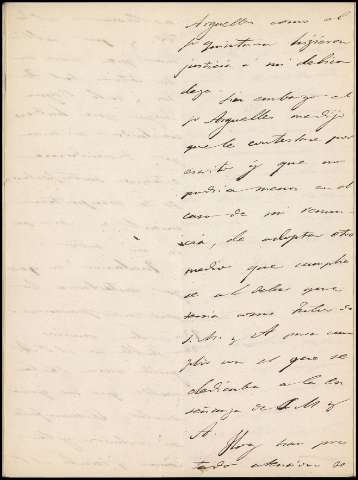 Arguelles como el
Sr Quintana hizieron
justicia á mi delica
deza.
Sin embargo el
Sr Arguelles me dijo
que le contestase por
escrito y que no
podria menos en el
caso de mi renun
cia, de adoptar otro
medio que cumplie
se al deber que
tenia como Tutor de
S.M. y A para cum
plir con el que se
dedicaba a la en
señanza de S M y
A.
Hoy han pre